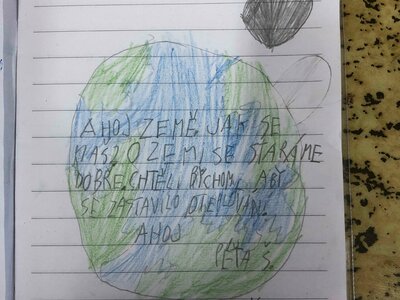 AHOJ ZEMĚ, JAK SE
MÁŠ? O ZEMI SE STARÁME
DOBŘE, CHTĚLI BYCHOM, ABY
SE ZASTAVILO OTEPLOVÁNÍ.
AHOJ
PÉŤA Š.